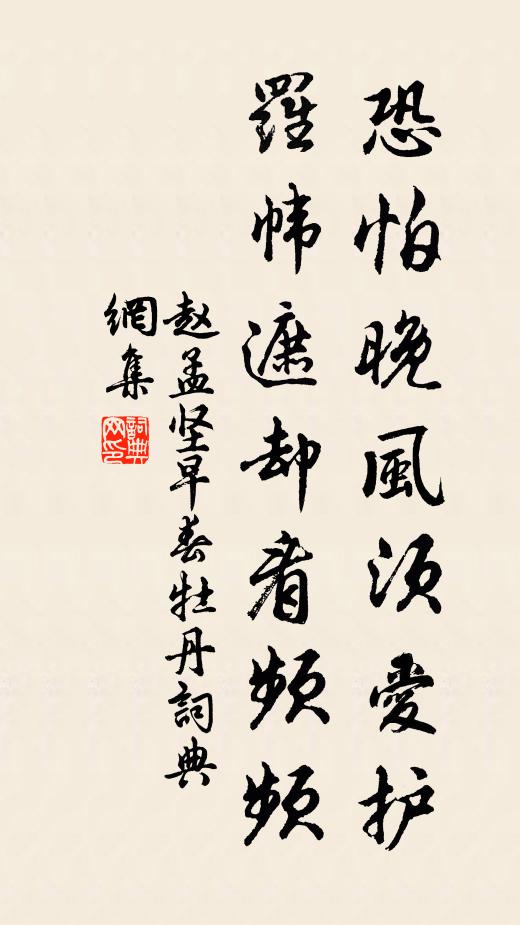 恐怕晚風须愛护
羅帏遮却看頻頻
赵孟坚早春牡丹詞典
網集
詞典网印